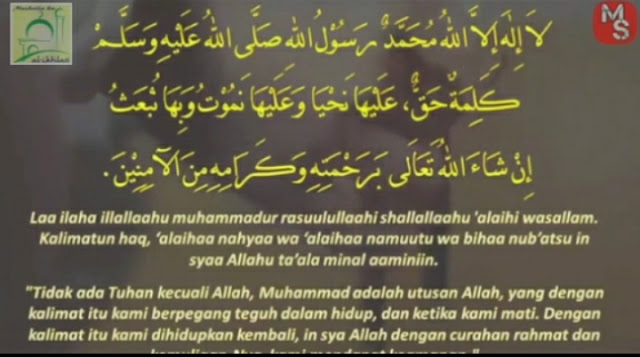 M
S
لَا إِلٰهَ إِلَّا اللهُ مُحَمَّدٌ رَسُوْلُ اللهِ صَلَّى اللهُ عَلَيْهِ وَسَلَّمْ
كَلِمَةٌ حَقٌّ، عَلَيْهَا نَحْيَا وَعَلَيْهَا نَمُوْتُ وَبِهَا نُبْعَثُ
إِنْ شَاءَ اللهُ تَعَالَى بَرَحْمَتِهِ وَكَرَامِهِ مِنَ الْآمِنِيْنَ.
Laa ilaha illallaahu muhammadur rasuulullaahi shallallaahu 'alaihi wasallam.
Kalimatun haq, 'alaihaa nahyaa wa 'alaihaa namuutu wa bihaa nub'atsu in
syaa Allahu ta'ala minal aaminiin.
"Tidak ada Tuhan kecuali Allah, Muhammad adalah utusan Allah, yang dengan
kalimat itu kami berpegang teguh dalam hidup, dan ketika kami mati. Dengan
kalimat itu kami dihidupkan kembali, in sya Allah dengan curahan rahmat dan